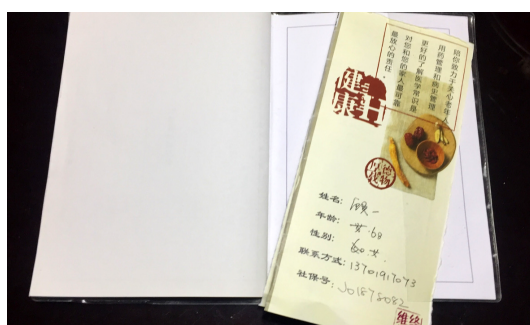 陪你致力于关心老年人
用药管理和病史管理
更好的了解医学常识是
对您和您的家人最可靠
最放心的责任。
健康
厚德载物
姓名:
年龄: 68
性别: 女
联系方式: 13701917073
社保号: J01878082